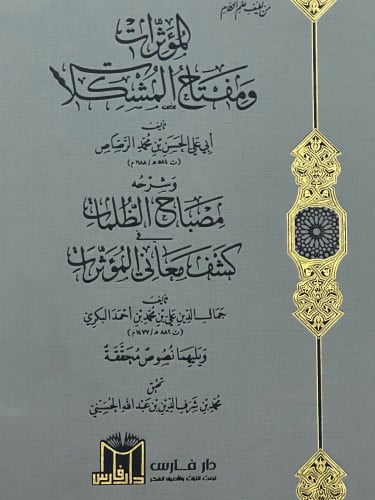 من لطيف علم الكلام
المؤثرات
ومفتاح المشكلات
تأليف
أبي علي الحسن بن محمد الرصاص
(ت ٥٨٤ هـ / ١١٨٨ م)
وشرحه
مصباح الظلمات
في
كشف معاني المؤثرات
تأليف
جمال الدين علي بن محمد بن أحمد البكري
(ت ٨٨٢ هـ / ١٤٧٧ م)
ويليهما نصوص محققة
تحقيق
محمد بن شرف الدين بن عبد الله الحسيني
دار فارس
دار فارس